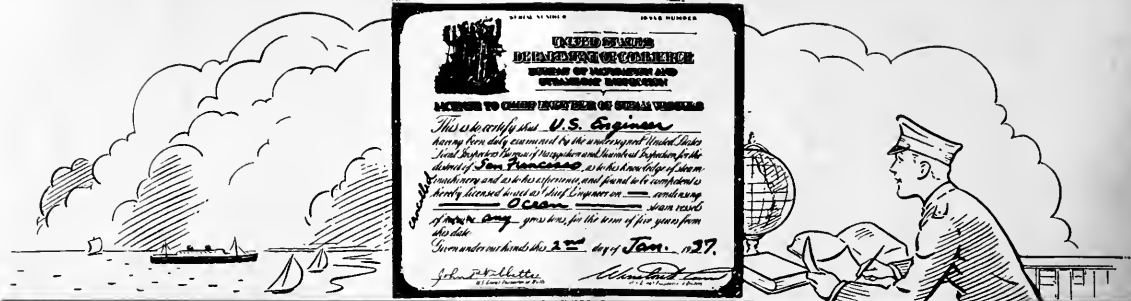 SERIAL NUMBER ISSUE NUMBER
UNITED STATES
DEPARTMENT OF COMMERCE
BUREAU OF NAVIGATION AND
STEAMBOAT INSPECTION
LICENSE TO CHIEF ENGINEER OF STEAM VESSELS
This is to certify that U.S. Engineer
having been duly examined by the undersigned United States
Local Inspectors Bureau of Navigation and Steamboat Inspection for the
district of San Francisco, as to his knowledge of steam
machinery and as to his experience, and found to be competent is
hereby licensed to act as Chief Engineer on — condensing
Ocean steam vessels
of any gross tons, for the term of five years from
this date.
Given under our hands this 2nd day of Jan. 1927.
cancelled
John